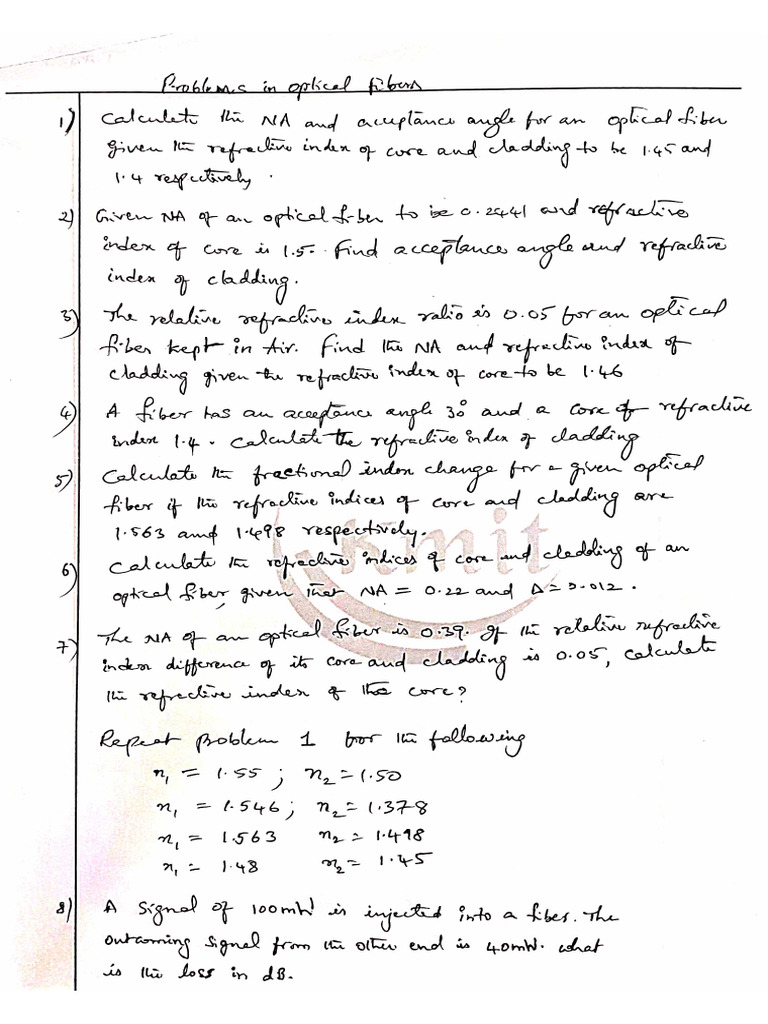 Problems in optical fibers
1) Calculate the NA and acceptance angle for an optical fiber
given the refractive index of core and cladding to be 1.45 and
1.4 respectively.
2) Given NA of an optical fiber to be 0.2441 and refractive
index of core is 1.5. Find acceptance angle and refractive
index of cladding.
3) The relative refractive index ratio is 0.05 for an optical
fiber kept in Air. Find the NA and refractive index of
cladding given the refractive index of core to be 1.46
4) A fiber has an acceptance angle 30° and a core of refractive
index 1.4. Calculate the refractive index of cladding
5) Calculate the fractional index change for a given optical
fiber if the refractive indices of core and cladding are
1.563 and 1.498 respectively.
kmit
6) Calculate the refractive indices of core and cladding of an
optical fiber, given that NA = 0.22 and Δ = 0.012.
7) The NA of an optical fiber is 0.39. If the relative refractive
index difference of its core and cladding is 0.05, calculate
the refractive index of the core?
Repeat problem 1 for the following
n₁ = 1.55 ; n₂ = 1.50
n₁ = 1.546 ; n₂ = 1.378
n₁ = 1.563 n₂ = 1.498
n₁ = 1.48 n₂ = 1.45
8) A signal of 100mW is injected into a fiber. The
outcoming signal from the other end is 40mW. what
is the loss in dB.